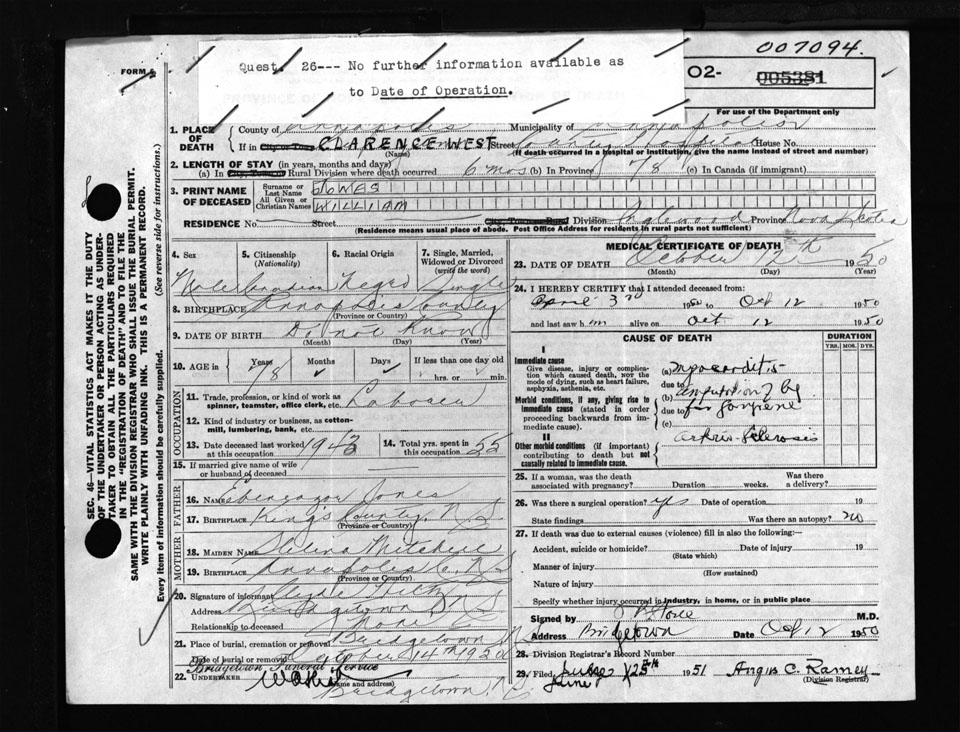 007094.
FORM 6
Quest. 26--- No further information available as
to Date of Operation.
02-
005381
For use of the Department only
1. PLACE OF DEATH
County of Annapolis Municipality of Annapolis
If in City, Town or CLARENCE WEST Street County Hospital House No.
(Name) (If death occurred in a hospital or institution, give the name instead of street and number)
2. LENGTH OF STAY (in years, months and days)
(a) In City, Town or Rural Division where death occurred 6 mos (b) In Province 78 (c) In Canada (if immigrant)
3. PRINT NAME OF DECEASED
Surname or Last Name JONES
All Given or Christian Names WILLIAM
RESIDENCE No. Street City, Town or Rural Division Inglewood Province Nova Scotia
(Residence means usual place of abode. Post Office Address for residents in rural parts not sufficient)
4. Sex
Male
5. Citizenship (Nationality)
Canadian
6. Racial Origin
Negro
7. Single, Married, Widowed or Divorced (write the word)
Single
8. BIRTHPLACE Annapolis County
(Province or Country)
9. DATE OF BIRTH Do not Know
(Month) (Day) (Year)
10. AGE in Years 78 Months ✓ Days ✓ If less than one day old
hrs. or min.
OCCUPATION
11. Trade, profession, or kind of work as spinner, teamster, office clerk, etc. Laborer
12. Kind of industry or business, as cotton-mill, lumbering, bank, etc.
13. Date deceased last worked at this occupation 1943
14. Total yrs. spent in this occupation 55
15. If married give name of wife or husband of deceased
FATHER
16. NAME Ebenezar Jones
17. BIRTHPLACE Kings County, N S
(Province or Country)
MOTHER
18. MAIDEN NAME Mitchell
19. BIRTHPLACE Annapolis Co. N S
(Province or Country)
20. Signature of informant Clyde
Address Bridgetown N S
Relationship to deceased None
21. Place of burial, cremation or removal Bridgetown N.S
Date of burial or removal October 14th 1950
Bridgetown Funeral Service
22. UNDERTAKER
(Name and address)
Bridgetown, N.S
MEDICAL CERTIFICATE OF DEATH
23. DATE OF DEATH October 12th 1950
(Month) (Day) (Year)
24. I HEREBY CERTIFY that I attended deceased from:
April 3rd 1950 to Oct 12 1950
and last saw him alive on Oct. 12 1950
CAUSE OF DEATH
DURATION
YRS. MOS. DYS.
I
Immediate cause
Give disease, injury or complication which caused death, not the mode of dying, such as heart failure, asphyxia, asthenia, etc.
(a) Myocarditis
due to
Morbid conditions, if any, giving rise to immediate cause (stated in order proceeding backwards from immediate cause).
(b) amputation of leg
due to for gangrene
(c)
II
Other morbid conditions (if important) contributing to death but not causally related to immediate cause.
Arterio-Sclerosis
25. If a woman, was the death associated with pregnancy? Duration weeks. Was there a delivery?
26. Was there a surgical operation? yes Date of operation 19
State findings Was there an autopsy? no
27. If death was due to external causes (violence) fill in also the following:—
Accident, suicide or homicide? Date of injury 19
(State which)
Manner of injury
(How sustained)
Nature of injury
Specify whether injury occurred in industry, in home, or in public place
Signed by M.D.
Address Bridgetown Date Oct 12 1950
28. Division Registrar's Record Number
29. Filed June 25th 1951 Angus C. Ramey
June (Division Registrar)
SEC. 46—VITAL STATISTICS ACT MAKES IT THE DUTY
OF THE UNDERTAKER OR PERSON ACTING AS UNDER-
TAKER TO OBTAIN ALL THE PARTICULARS REQUIRED
IN THE "REGISTRATION OF DEATH" AND TO FILE THE
SAME WITH THE DIVISION REGISTRAR WHO SHALL ISSUE THE BURIAL PERMIT.
WRITE PLAINLY WITH UNFADING INK. THIS IS A PERMANENT RECORD.
Every item of information should be carefully supplied. (See reverse side for instructions.)